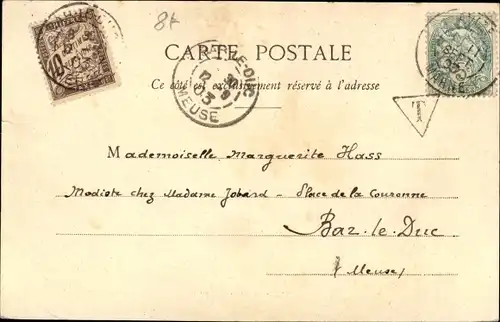 8f
CARTE POSTALE
Ce côté est exclusivement réservé à l'adresse
BAR-LE-DUC
MEUSE
10
T
Mademoiselle Marguerite Hass
Modiste chez Madame Jobard - Place de la Couronne
Bar-le-Duc
(Meuse)